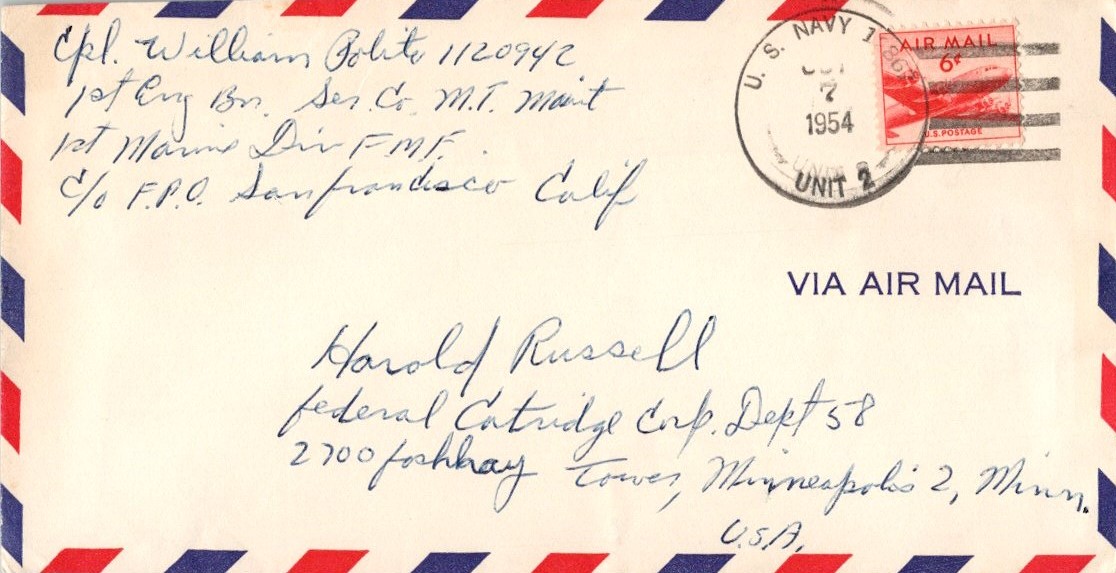 Cpl. William Polito 1120942
1st Eng Bn. Ser. Co. M.T. Maint
1st Marine Div F.M.F.
c/o F.P.O. Sanfrancisco Calif
U. S. NAVY
7
1954
UNIT 2
AIR MAIL
6¢
U.S. POSTAGE
VIA AIR MAIL
Harold Russell
federal Catridge Corp. Dept 58
2700 foshhay Tower, Minneapolis 2, Minn.
U.S.A.